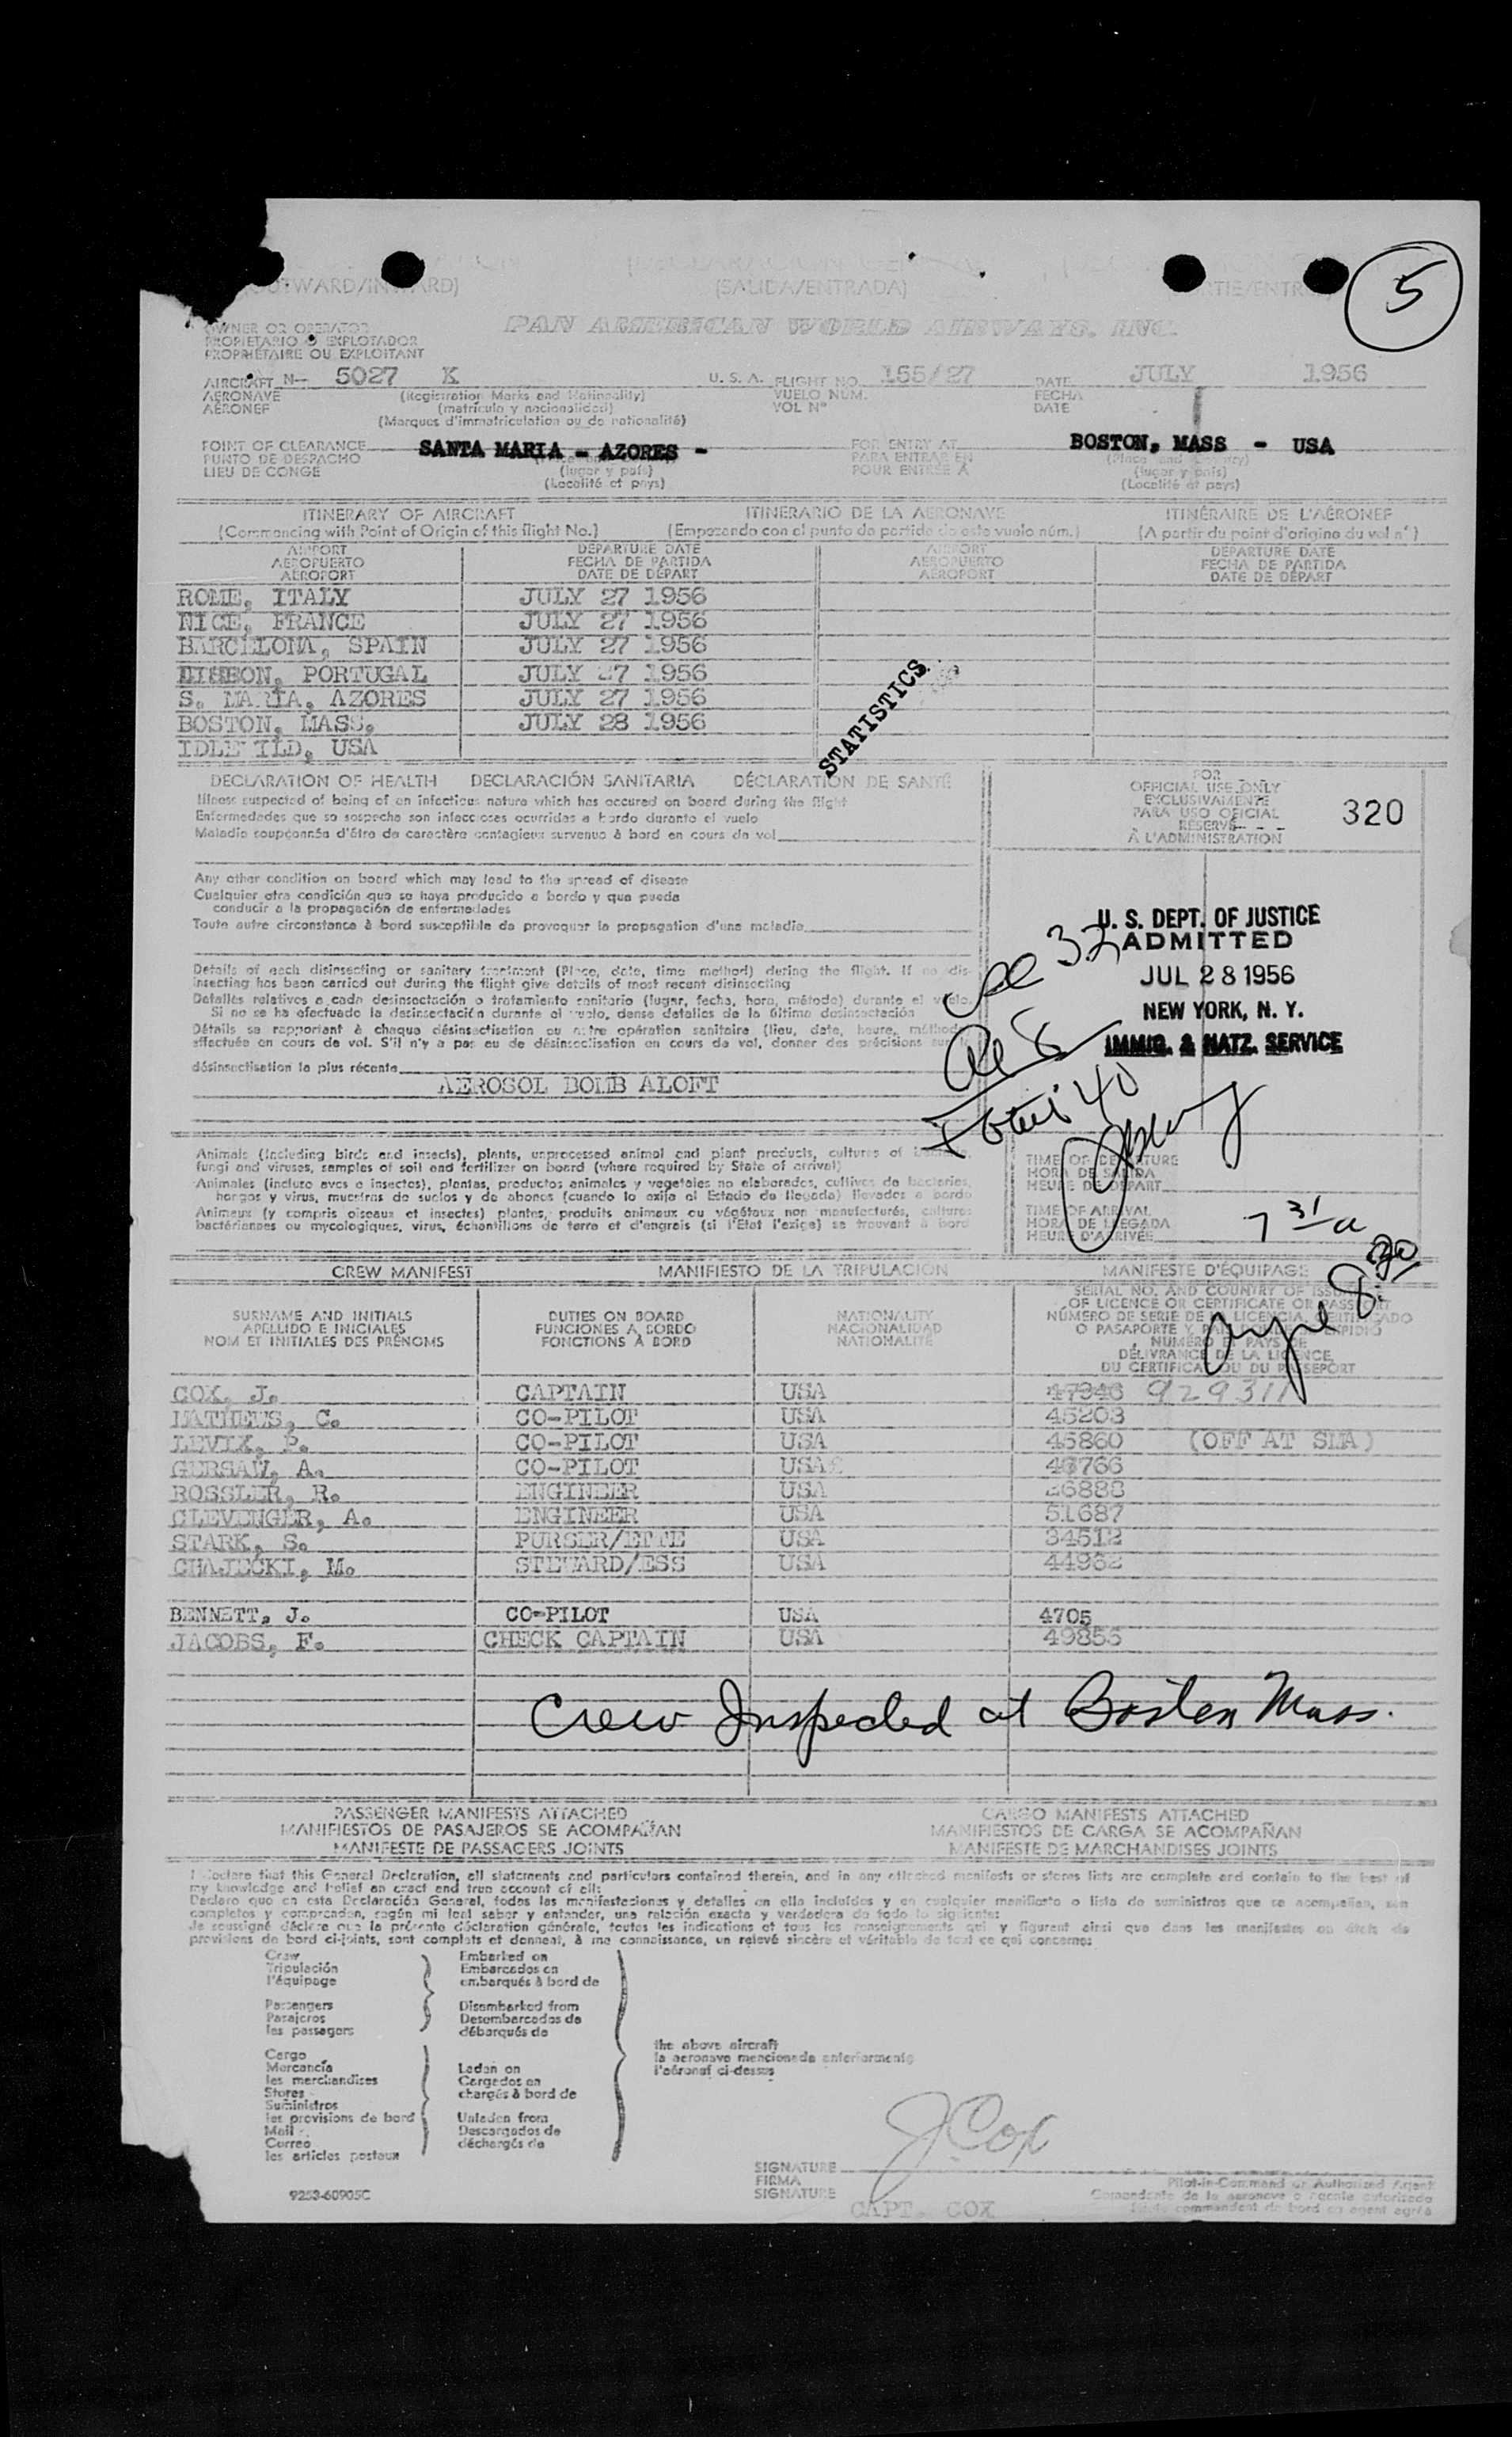 5
(OUTWARD/INWARD) (SALIDA/ENTRADA)
OWNER OR OPERATOR PAN AMERICAN WORLD AIRWAYS, INC.
PROPIETARIO O EXPLOTADOR
PROPRIÉTAIRE OU EXPLOITANT
AIRCRAFT N- 5027 K U. S. A. FLIGHT NO. 155/27 DATE JULY 1956
AERONAVE (Registration Marks and Nationality) VUELO NUM. FECHA
AÉRONEF (matrícula y nacionalidad) VOL Nº DATE
(Marques d'immatriculation ou de nationalité)
POINT OF CLEARANCE SANTA MARIA - AZORES - FOR ENTRY AT BOSTON, MASS - USA
PUNTO DE DESPACHO PARA ENTRAR EN (Place and country)
LIEU DE CONGE (lugar y país) POUR ENTRÉE A (lugar y país)
(Localité et pays) (Localité et pays)
ITINERARY OF AIRCRAFT ITINERARIO DE LA AERONAVE ITINÉRAIRE DE L'AÉRONEF
(Commencing with Point of Origin of this flight No.) (Empezando con el punto de partida de este vuelo núm.) (A partir du point d'origine du vol nº)
AIRPORT DEPARTURE DATE AIRPORT DEPARTURE DATE
AEROPUERTO FECHA DE PARTIDA AEROPUERTO FECHA DE PARTIDA
AÉROPORT DATE DE DÉPART AÉROPORT DATE DE DÉPART
ROME, ITALY JULY 27 1956
NICE, FRANCE JULY 27 1956
BARCELONA, SPAIN JULY 27 1956
LISBON, PORTUGAL JULY 27 1956
S. MARIA, AZORES JULY 27 1956
BOSTON, MASS. JULY 28 1956
IDLEWILD, USA
STATISTICS
DECLARATION OF HEALTH DECLARACIÓN SANITARIA DÉCLARATION DE SANTÉ
Illness suspected of being of an infectious nature which has occured on board during the flight
Enfermedades que se sospecha son infecciosas ocurridas a bordo durante el vuelo
Maladie soupçonnée d'être de caractère contagieux survenue à bord en cours de vol
FOR
OFFICIAL USE ONLY
EXCLUSIVAMENTE
PARA USO OFICIAL 320
RÉSERVÉ
À L'ADMINISTRATION
Any other condition on board which may lead to the spread of disease
Cualquier otra condición que se haya producido a bordo y que pueda
conducir a la propagación de enfermedades
Toute autre circonstance à bord susceptible de provoquer la propagation d'une maladie
U. S. DEPT. OF JUSTICE
ADMITTED
JUL 28 1956
NEW YORK, N. Y.
IMMIG. & NATZ. SERVICE
32
8
Total 40
Details of each disinsecting or sanitary treatment (Place, date, time method) during the flight. If no dis-
insecting has been carried out during the flight give details of most recent disinsecting
Detalles relativos a cada desinsectación o tratamiento sanitario (lugar, fecha, hora, método) durante el vuelo.
Si no se ha efectuado la desinsectación durante el vuelo, dense detalles de la última desinsectación
Détails se rapportant à chaque désinsectisation ou autre opération sanitaire (lieu, date, heure, méthode)
effectuée en cours de vol. S'il n'y a pas eu de désinsectisation en cours de vol, donner des précisions sur la
désinsectisation la plus récente
AEROSOL BOMB ALOFT
Animals (including birds and insects), plants, unprocessed animal and plant products, cultures of bacteria,
fungi and viruses, samples of soil and fertilizer on board (where required by State of arrival)
Animales (incluso aves e insectos), plantas, productos animales y vegetales no elaborados, cultivos de bacterias,
hongos y virus, muestras de suelos y de abonos (cuando lo exija el Estado de llegada) llevados a bordo
Animaux (y compris oiseaux et insectes) plantes, produits animaux ou végétaux non manufacturés, cultures
bactériennes ou mycologiques, virus, échantillons de terre et d'engrais (si l'État l'exige) se trouvant à bord
TIME OF DEPARTURE
HORA DE SALIDA
HEURE DE DÉPART
TIME OF ARRIVAL
HORA DE LLEGADA 7 31 a
HEURE D'ARRIVÉE
CREW MANIFEST MANIFIESTO DE LA TRIPULACIÓN MANIFESTE D'ÉQUIPAGE
SURNAME AND INITIALS DUTIES ON BOARD NATIONALITY
APELLIDO E INICIALES FUNCIONES A BORDO NACIONALIDAD
NOM ET INITIALES DES PRÉNOMS FONCTIONS À BORD NATIONALITÉ
SERIAL NO. AND COUNTRY OF ISSUE
OF LICENCE OR CERTIFICATE OR PASSPORT
DÉLIVRANCE DE LA LICENCE,
DU CERTIFICAT OU DU PASSEPORT
COX, J. CAPTAIN USA 47346 929311
MATHEWS, C. CO-PILOT USA 45203
LEVIX, P. CO-PILOT USA 45860 (OFF AT SMA)
GERSAW, A. CO-PILOT USA 43766
ROSSLER, R. ENGINEER USA 26888
CLEVENGER, A. ENGINEER USA 51687
STARK, S. PURSER/ETTE USA 34512
CHAJECKI, M. STEWARD/ESS USA 44962
BENNETT, J. CO-PILOT USA 4705
JACOBS, F. CHECK CAPTAIN USA 49856
Crew Inspected at Boston Mass.
PASSENGER MANIFESTS ATTACHED CARGO MANIFESTS ATTACHED
MANIFIESTOS DE PASAJEROS SE ACOMPAÑAN MANIFIESTOS DE CARGA SE ACOMPAÑAN
MANIFESTE DE PASSAGERS JOINTS MANIFESTE DE MARCHANDISES JOINTS
I declare that this General Declaration, all statements and particulars contained therein, and in any attached manifests or stores lists are complete and contain to the best of
my knowledge and belief an exact and true account of all:
Declaro que en esta Declaración General, todas las manifestaciones y detalles en ella incluídos y en cualquier manifiesto o lista de suministros que se acompañan, son
completos y comprenden, según mi leal saber y entender, una relación exacta y verdadera de todo lo siguiente:
Je soussigné déclare que la présente déclaration générale, toutes les indications et tous les renseignements qui y figurent ainsi que dans les manifestes ou états de
provisions de bord ci-joints, sont complets et donnent, à ma connaissance, un relevé sincère et véritable de tout ce qui concerne:
Crew Embarked on
Tripulación Embarcados en
l'équipage embarqués à bord de
Passengers Disembarked from
Pasajeros Desembarcados de
les passagers débarqués de
the above aircraft
la aeronave mencionada anteriormente
l'aéronef ci-dessus
Cargo
Mercancía Laden on
les merchandises Cargados en
Stores chargés à bord de
Suministros
les provisions de bord Unladen from
Mail Descargados de
Correo déchargés de
les articles postaux
J Cox
SIGNATURE Pilot-in-Command or Authorized Agent
FIRMA Comandante de la aeronave o agente autorizado
SIGNATURE commandant de bord ou agent agréé
9253-60905C CAPT. COX